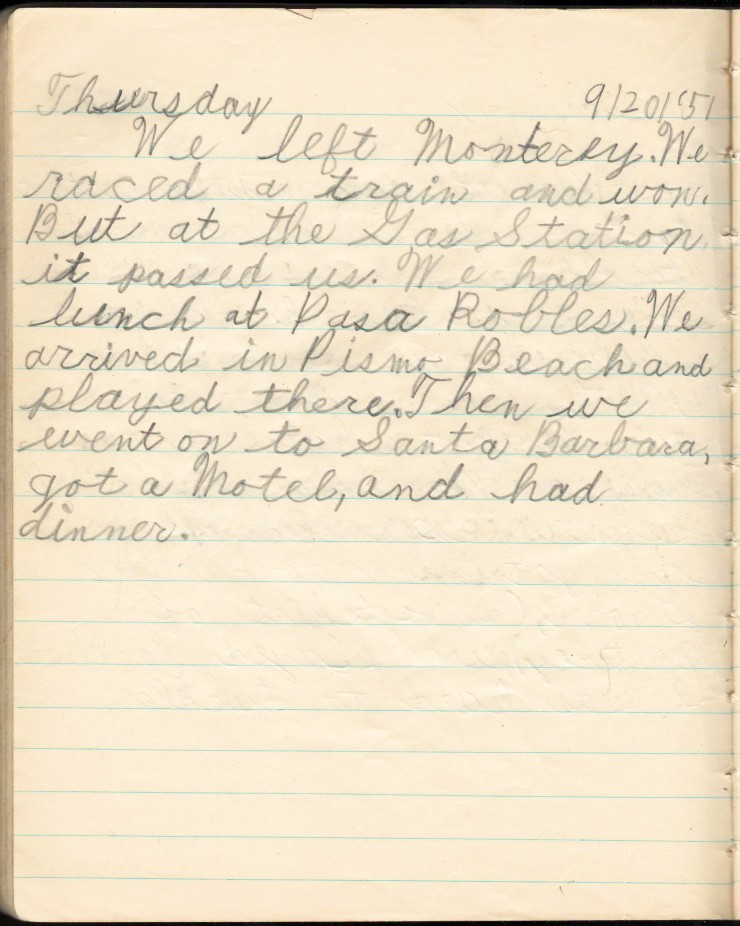 Thursday 9/20/'51
We left Monterey. We
raced a train and won.
But at the Gas Station
it passed us. We had
lunch at Pasa Robles. We
arrived in Pismo Beach and
played there. Then we
went on to Santa Barbara,
got a Motel, and had
dinner.